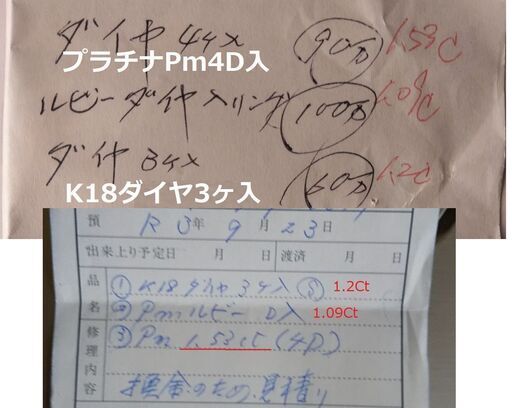 ダイヤ4ケ入 90万 1.53c
プラチナPm4D入
ルビーダイヤ入リング 100万 1.09c
ダイヤ3ケ入 60万 1.2c
K18ダイヤ3ヶ入
預 R3年9月23日
出来上り予定日 月 日 渡済 月 日
品名 修理内容
① K18ダイヤ3ケ入 1.2Ct
② Pmルビー D入 1.09Ct
③ Pm 1.53ct (4D)
換金のため見積り